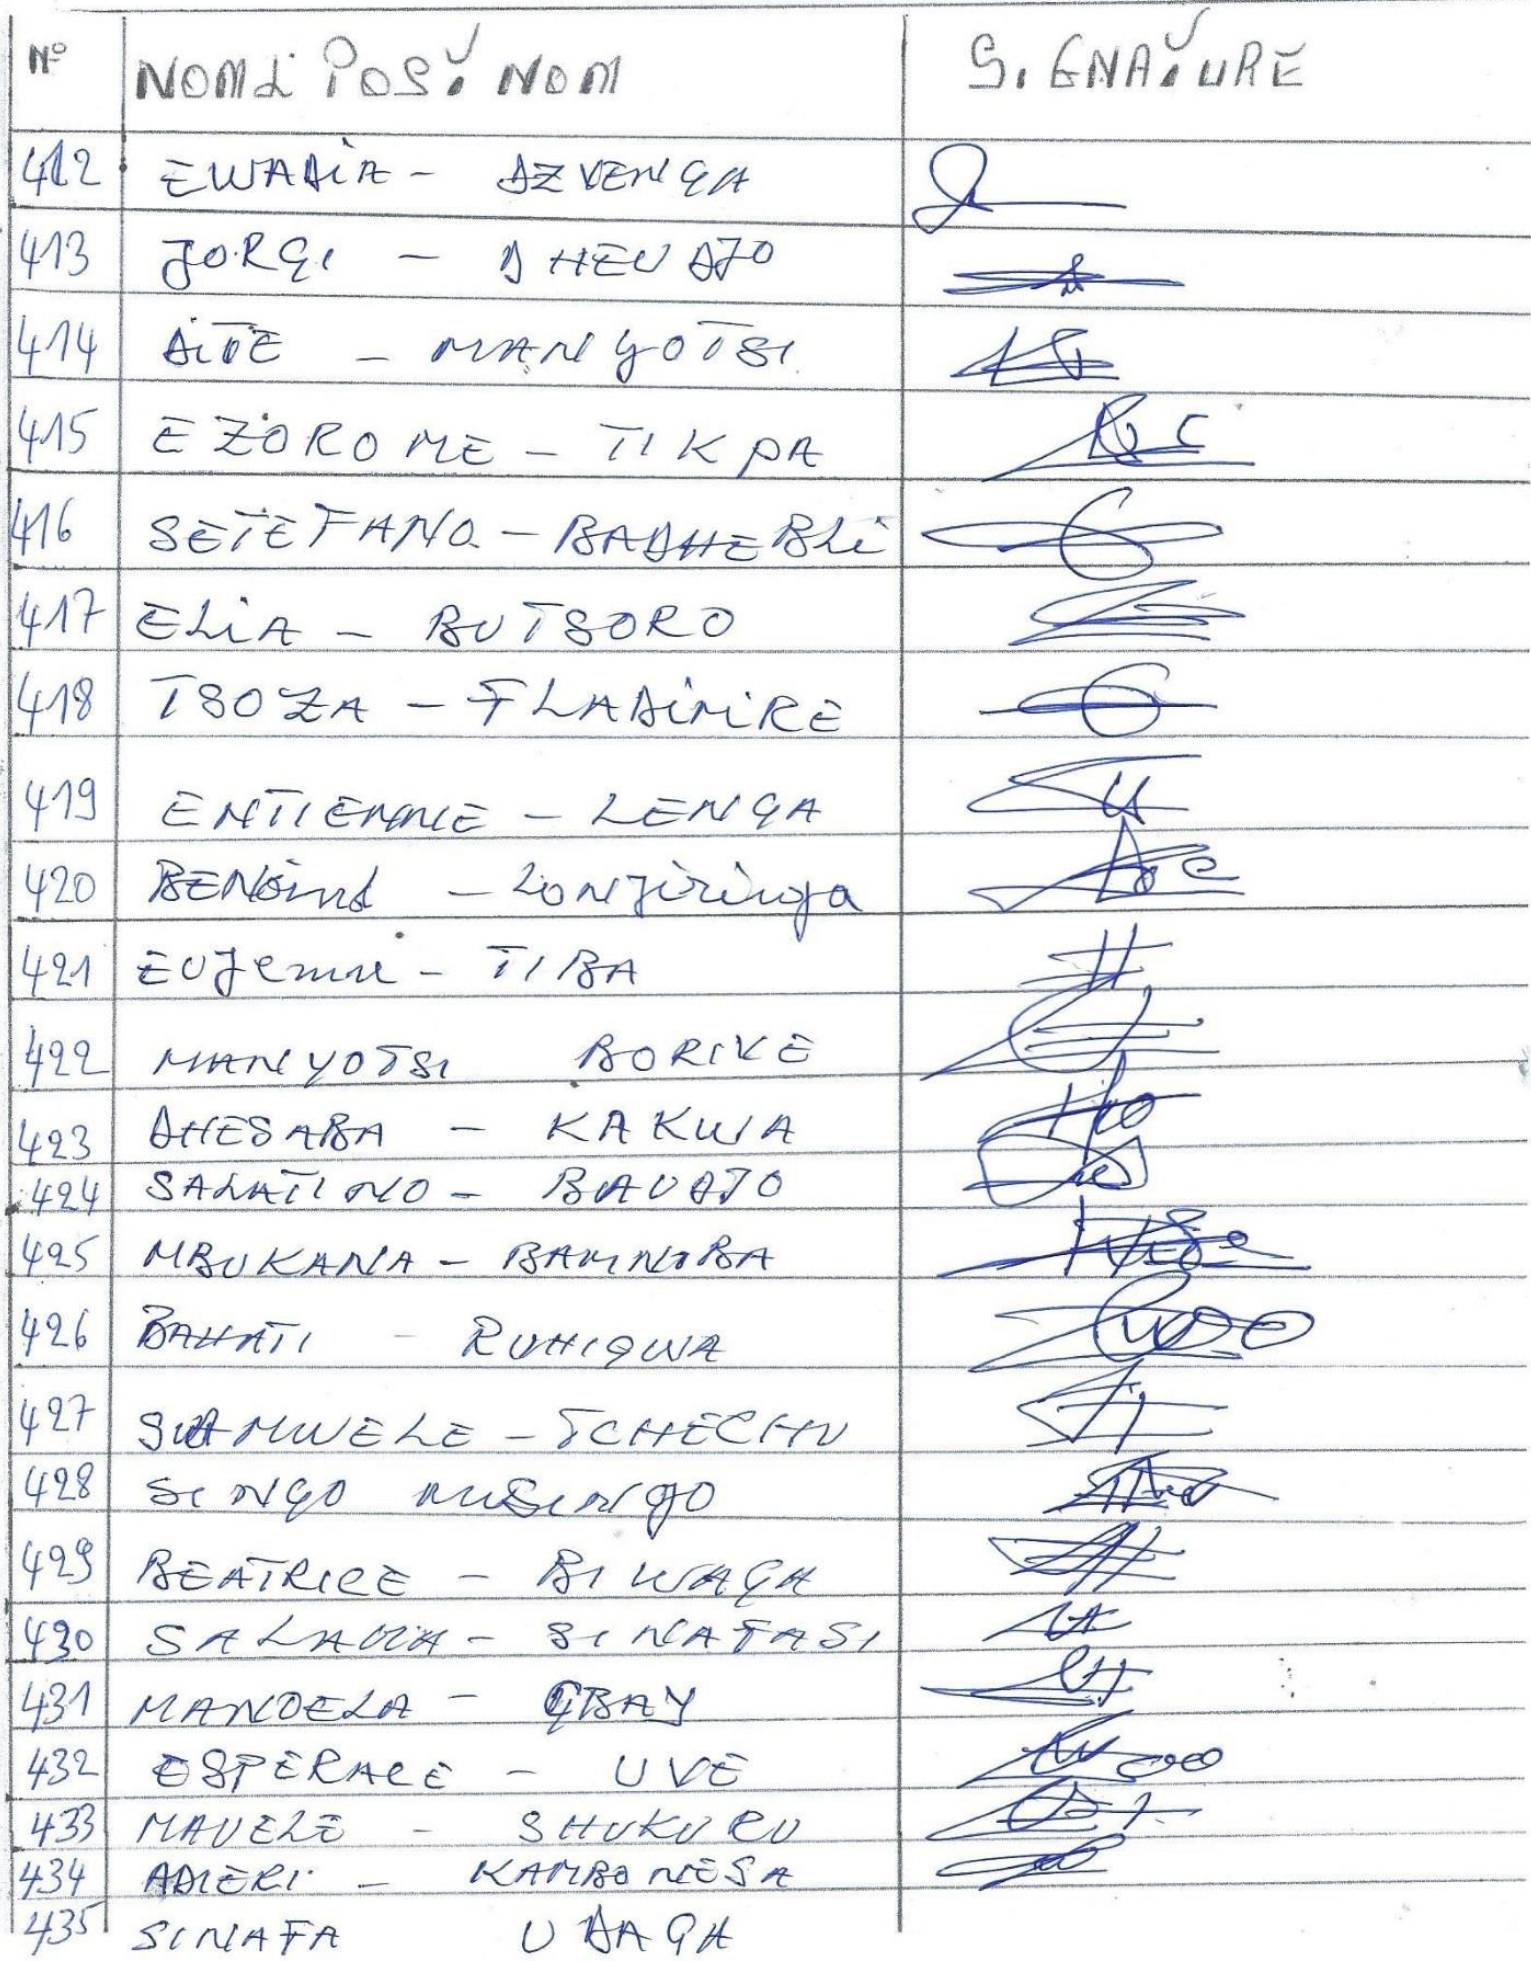 N° NOM & POST NOM SIGNATURE
412 EWADIA - DZVENGA
413 JORGI - DHEUDJO
414 DITE - MANYOTSI
415 EZOROME - TIKPA
416 SETEFANO - BADHEBLI
417 ELIA - BUTSORO
418 TSOZA - FLADIMIRE
419 ENTIENNE - LENGA
420 BENOind - LONJiringa
421 EUJenne - TIBA
422 MANYOTSI BORIVE
423 DHESABA - KAKWA
424 SALATINO - BAUDJO
425 MBUKANA - BAMNOBA
426 BAHATI - RUHIGWA
427 SAMWELE - TCHECHU
428 SINGO MUSINGO
429 BEATRICE - BIWAGA
430 SALAMA - SINAFASI
431 MANDELA - GBAY
432 ESPERACE - UVE
433 MAVELE - SHUKURU
434 ADIERI - KAMBONESA
435 SINAFA UDAGA